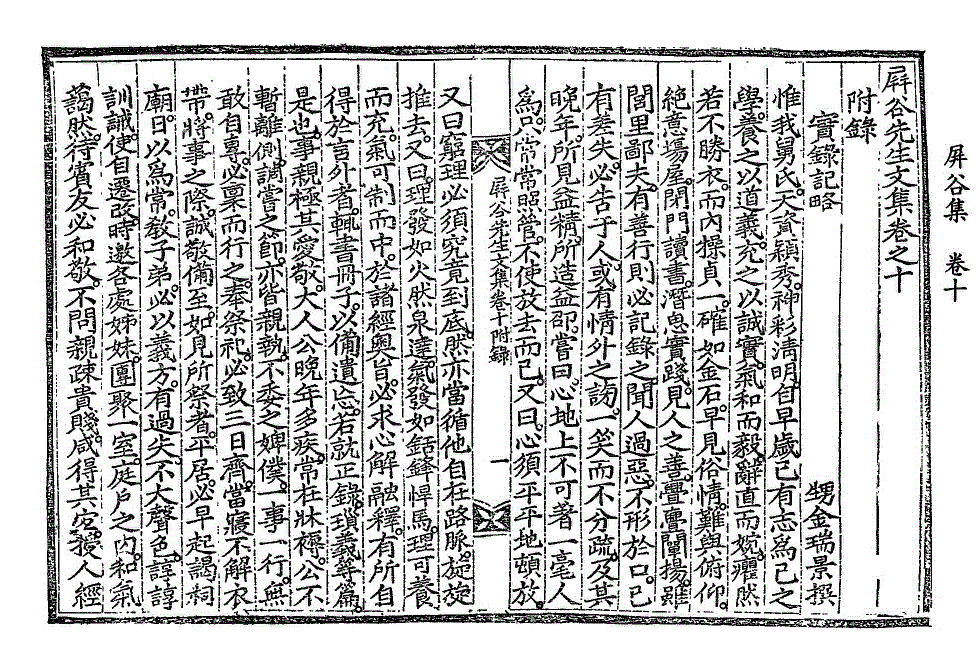 屛谷集 卷十
屛谷先生文集卷之十
附錄
實錄記略 甥金瑞景撰
惟我舅氏天資穎秀神彩淸明自早歲已有志爲己之
學養之以道義充之以誠實氣和而毅辭直而婉癯然
若不勝衣而內操貞一確如金石早見俗情難與俯仰
絶意場屋閉門讀書潛思實踐見人之善亹亹闡揚雖
閭里鄙夫有善行則必記錄之聞人過惡不形於口己
有差失必告于人或有情外之謗一笑而不分疏及其
晩年所見益精所造益卲嘗曰心地上不可著一毫人
爲只常常照管不使放去而已又曰心須平平地頓放
屛谷先生文集卷十附錄 一
又曰窮理必須究竟到底然亦當循他自在路脈旋旋
推去又曰理發如火然泉達氣發如銛鋒悍馬理可養
而充氣可制而中於諸經奧旨必求心解融釋有所自
得於言外者輒書冊子以備遺忘若就正錄瑣義等篇
是也事親極其愛敬大人公晩年多疾常在牀褥公不
暫離側調嘗之節亦皆親執不委之婢僕一事一行無
敢自專必稟而行之奉祭祀必致三日齊當寢不解衣
帶將事之際誠敬備至如見所祭者平居必早起謁祠
廟日以爲常敎子弟必以義方有過失不大聲色諄諄
訓誡使自遷改時邀各處姊妹團聚一室庭戶之內和氣
藹然待賓友必和敬不問親疎貴賤咸得其宜授人經